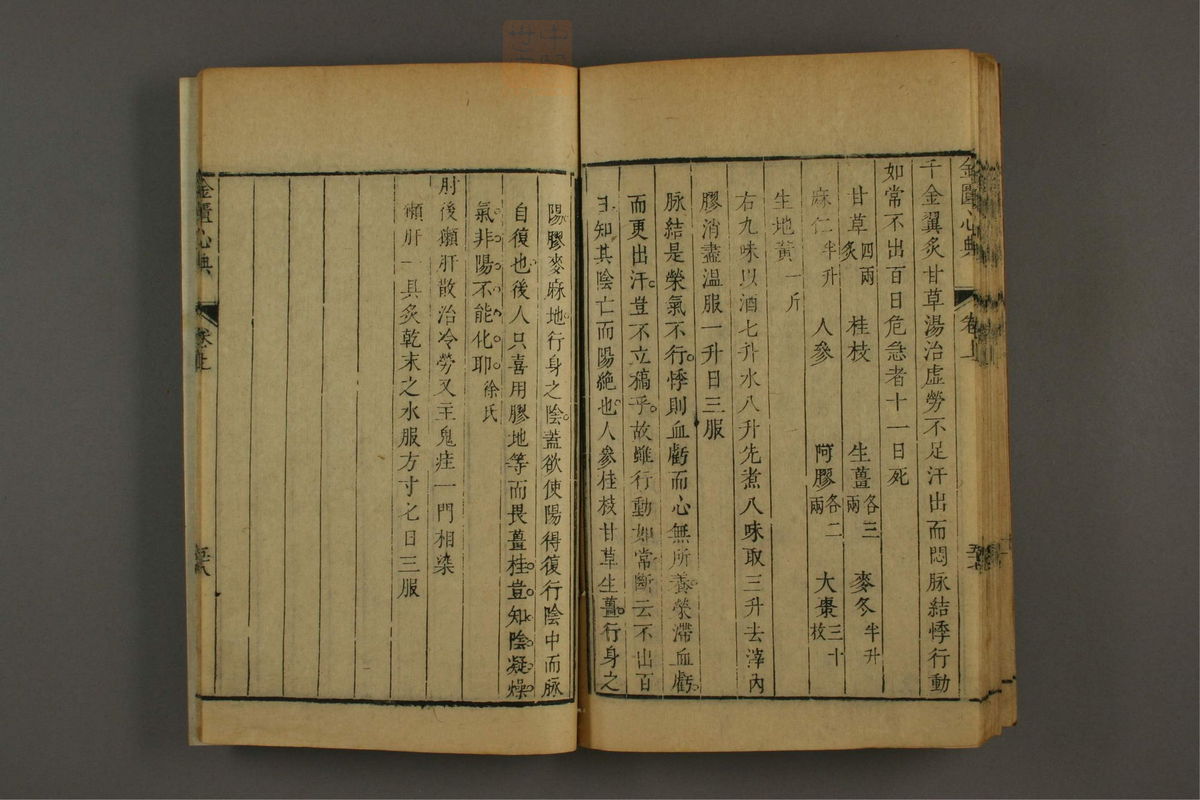 金匱心典
卷上
千金翼炙甘草湯治虛勞不足汗出而悶脉結悸行動
如常不出百日危急者十一日死
甘草四兩炙 桂枝 生薑各三兩 麥冬半升
麻仁半升 人參 阿膠各二兩 大棗三十枚
生地黃一斤
右九味以酒七升水八升先煮八味取三升去滓內
膠消盡溫服一升日三服
脉結是榮氣不行悸則血虧而心無所養榮滯血虧
而更出汗豈不立槁乎故雖行動如常斷云不出百
日知其陰亡而陽絕也人參桂枝甘草生薑行身之
陽膠麥麻地行身之陰蓋欲使陽得復行陰中而脉
自復也後人只喜用膠地等而畏薑桂豈知陰凝燥
氣非陽不能化耶徐氏
肘後獺肝散治冷勞又主鬼疰一門相染
獺肝一具炙乾末之水服方寸匕日三服
金匱心典
卷上